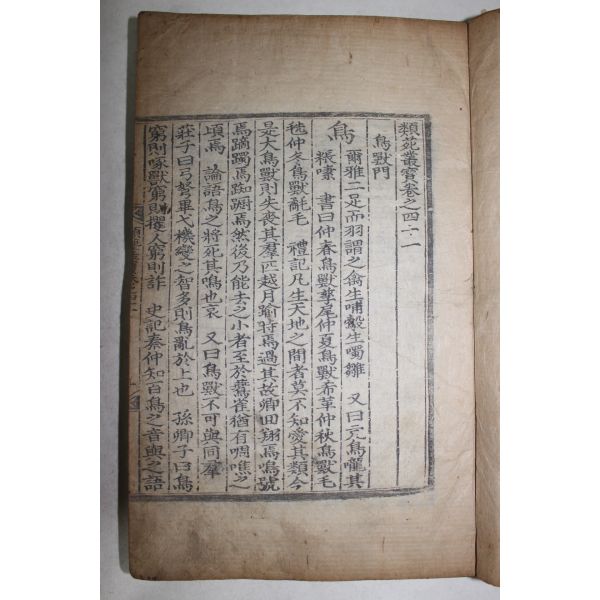 類苑叢寶卷之四十一
鳥獸門
鳥 爾雅二足而羽謂之禽生哺鷇生噣雛 又曰亢鳥嚨其
粻嗉 書曰仲春鳥獸孶尾仲夏鳥獸希革仲秋鳥獸毛
毨仲冬鳥獸氄毛 禮記凡生天地之間者莫不知愛其類今
是大鳥獸則失喪其羣匹越月踰時焉過其故鄕回翔焉鳴號
焉蹢躅焉踟躕焉然後乃能去之小者至於鷰雀猶有啁噍之
頃焉 論語鳥之將死其鳴也哀 又曰鳥獸不可與同羣
莊子曰弓弩畢弋機變之智多則鳥亂於上也 孫卿子曰鳥
窮則啄獸窮則攫人窮則詐 史記秦仲知百鳥之音與之語